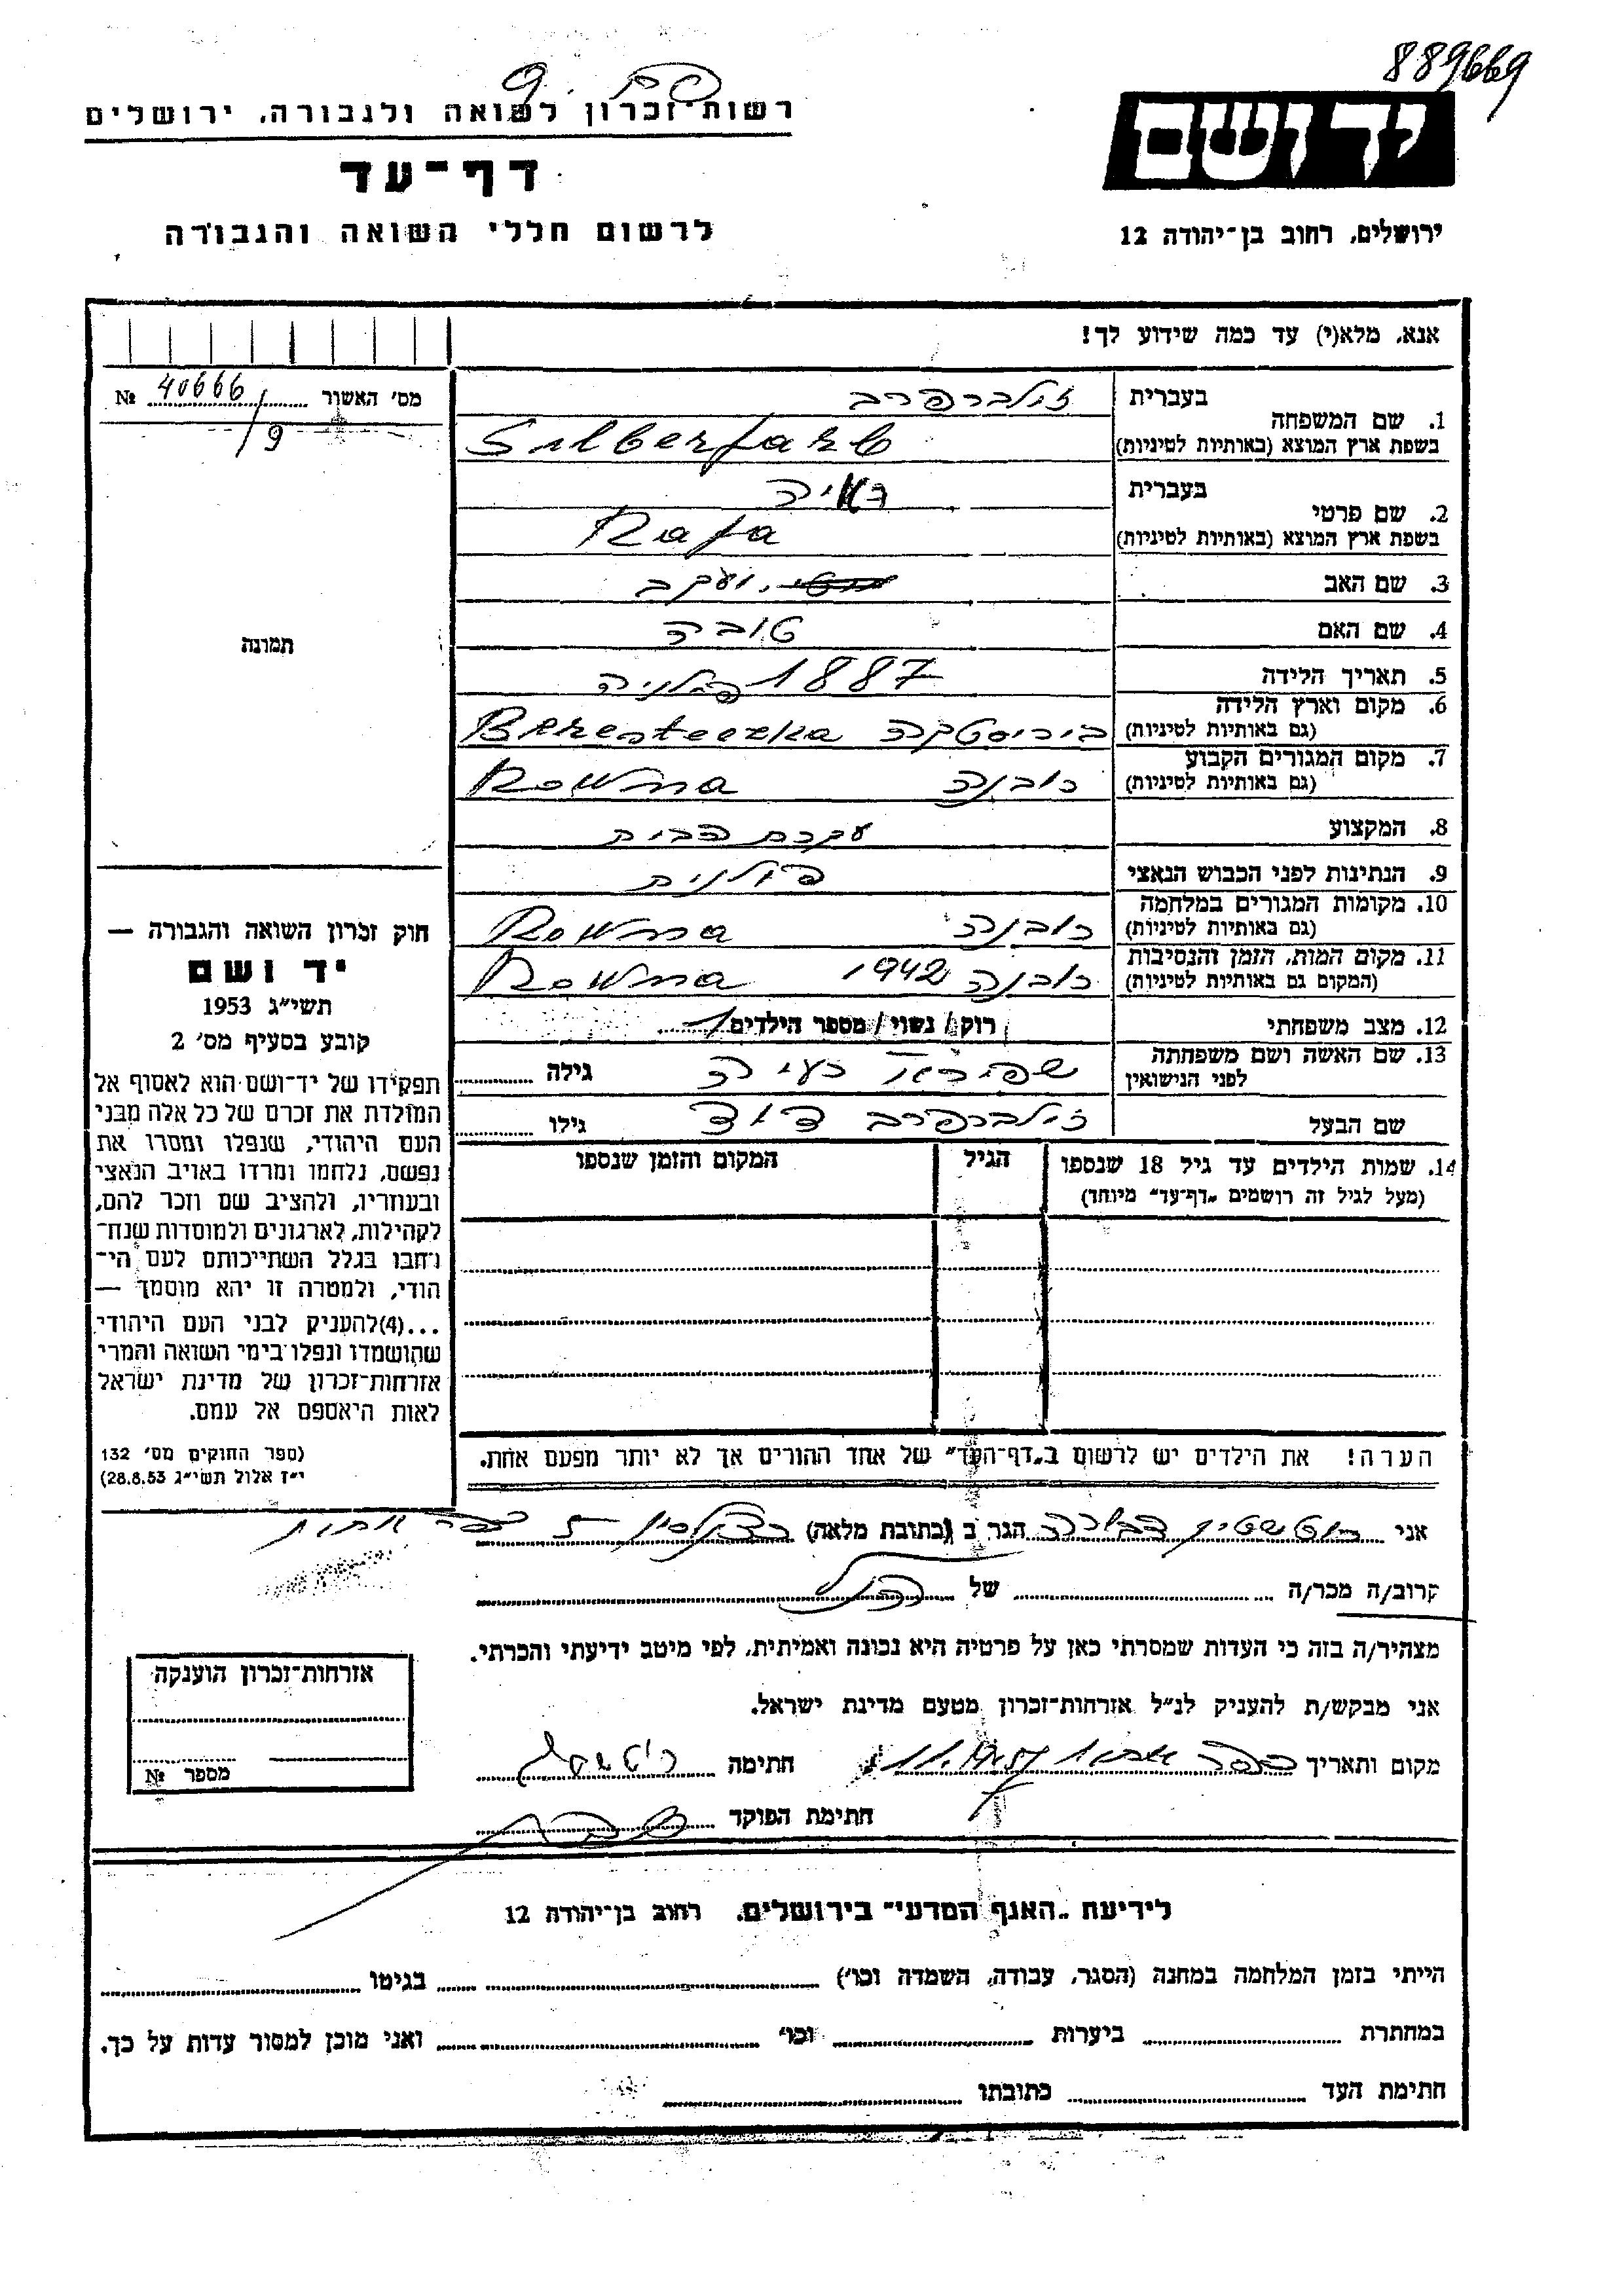 889669
רשות־זכרון לשואה ולגבורה, ירושלים
יד ושם
דף־עד
לרשום חללי השואה והגבורה
ירושלים, רחוב בן־יהודה 12
אנא, מלא(י) עד כמה שידוע לך!
מס׳ האשור 40666 №
/9
בעברית זילברפרב
1. שם המשפחה
בשפת ארץ המוצא (באותיות לטיניות) Silberfarb
בעברית
2. שם פרטי
בשפת ארץ המוצא (באותיות לטיניות) Raja
3. שם האב יעקב
4. שם האם טובה
5. תאריך הלידה 1887 פולניה
6. מקום וארץ הלידה
(גם באותיות לטיניות) ביריסטקה Beresteczka
7. מקום המגורים הקבוע
(גם באותיות לטיניות) רובנה Rowna
8. המקצוע עקרת הבית
9. הנתינות לפני הכבוש הנאצי פולנית
10. מקומות המגורים במלחמה
(גם באותיות לטיניות) רובנה Rowna
11. מקום המות, הזמן והנסיבות
(המקום גם באותיות לטיניות) רובנה 1942 Rowna
12. מצב משפחתי רוק/ נשוי/ מספר הילדים 1
13. שם האשה ושם משפחתה
לפני הנישואין שפירא רעיה גילה
שם הבעל זילברפרב דוד גילו
14. שמות הילדים עד גיל 18 שנספו
(מעל לגיל זה רושמים „דף־עד״ מיוחד)
הגיל
המקום והזמן שנספו
תמונה
חוק זכרון השואה והגבורה —
יד ושם
תשי״ג 1953
קובע בסעיף מס׳ 2
תפקידו של יד־ושם הוא לאסוף אל
המולדת את זכרם של כל אלה מבני
העם היהודי, שנפלו ומסרו את
נפשם, נלחמו ומרדו באויב הנאצי
ובעוזריו, ולהציב שם וזכר להם,
לקהילות, לארגונים ולמוסדות שנח־
רבו בגלל השתייכותם לעם הי־
הודי, ולמטרה זו יהא מוסמך —
...(4)להעניק לבני העם היהודי
שהושמדו ונפלו בימי השואה והמרי
אזרחות־זכרון של מדינת ישראל
לאות היאספם אל עמם.
(ספר החוקים מס׳ 132
י״ז אלול תשי״ג 28.8.53)
הערה! את הילדים יש לרשום ב„דף־העד״ של אחד ההורים אך לא יותר מפעם אחת.
אני רוטשטין דבורה הגר ב (כתובת מלאה)
קרוב/ה מכר/ה של
מצהיר/ה בזה כי העדות שמסרתי כאן על פרטיה היא נכונה ואמיתית, לפי מיטב ידיעתי והכרתי.
אני מבקש/ת להעניק לנ״ל אזרחות־זכרון מטעם מדינת ישראל.
מקום ותאריך חתימה
חתימת הפוקד
אזרחות־זכרון הוענקה
מספר №
לידיעת „האגף המדעי״ בירושלים, רחוב בן־יהודה 12
הייתי בזמן המלחמה במחנה (הסגר, עבודה, השמדה וכו׳) בגיטו
במחתרת ביערות וכו׳ ואני מוכן למסור עדות על כך.
חתימת העד כתובתו